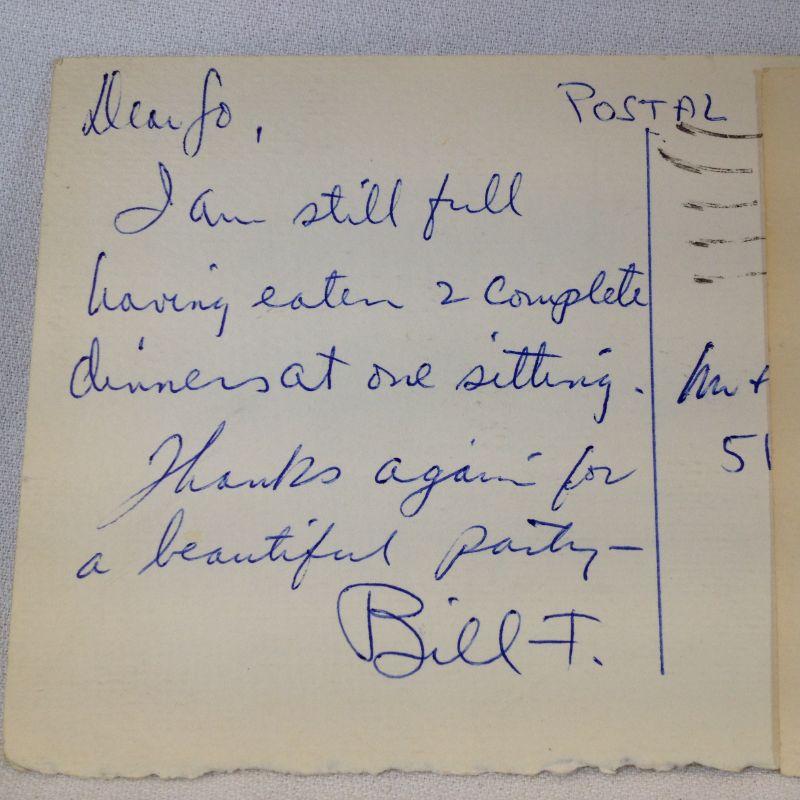 Dear Jo,
POSTAL
I am still full
having eaten 2 complete
dinners at one sitting.
Thanks again for
a beautiful party—
Bill T.
51